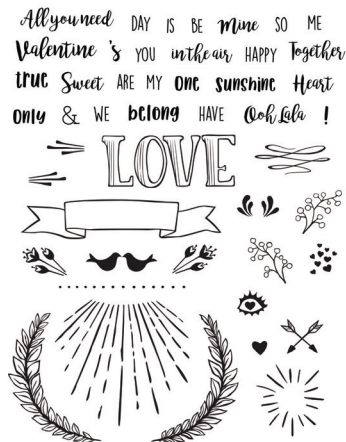 All you need DAY IS BE mine SO ME
Valentine 's YOU in the air HAPPY Together
true Sweet ARE MY one sunshine Heart
only & WE belong HAVE Ooh Lala !
LOVE